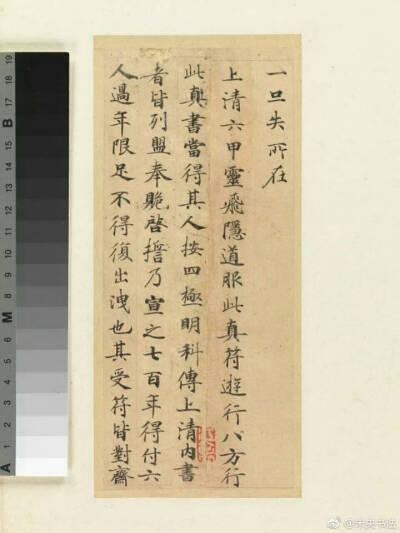 一旦失所在
上清六甲靈飛隱道服此真符遊行八方行
此真書當得其人按四極明科傳上清內書
者皆列盟奉䞈啓誓乃宣之七百年得付六
人過年限足不得復出洩也其受符皆對齋
19
18
17
B
16
15
14
13
12
11
10
9
M
8
7
6
5
4
3
2
1
A
@未央书法